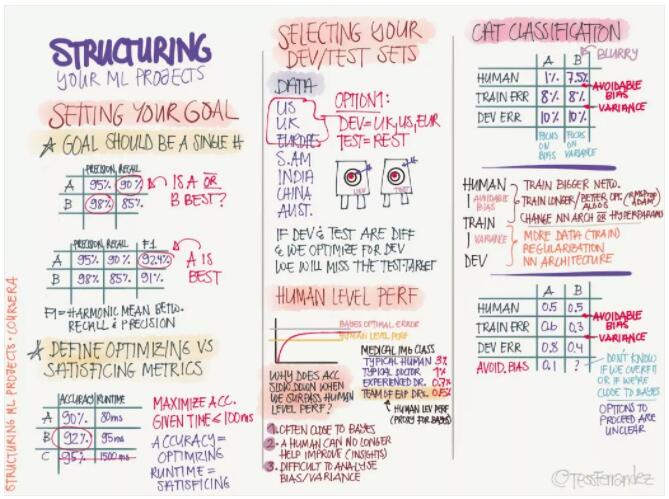 STRUCTURING
YOUR ML PROJECTS
SETTING YOUR GOAL
GOAL SHOULD BE A SINGLE #
PRECISION, RECALL
A 95% 90%
B 98% 85%
IS A OR
B BEST?
PRECISION, RECALL F1
A 95% 90% 92.4%
B 98% 85% 91%
A IS
BEST
F1 = HARMONIC MEAN BETW.
RECALL & PRECISION
DEFINE OPTIMIZING VS
SATISFICING METRICS
ACCURACY RUNTIME
A 90% 80ms
B 92% 95ms
C 95% 1500ms
MAXIMIZE ACC.
GIVEN TIME ≤ 100ms
ACCURACY =
OPTIMIZING
RUNTIME =
SATISFICING
STRUCTURING ML PROJECTS • COURSERA
SELECTING YOUR
DEV/TEST SETS
DATA
US
UK
EUROPE
S.AM
INDIA
CHINA
AUST.
OPTION 1:
DEV = UK, US, EUR
TEST = REST
DEV
TEST
IF DEV & TEST ARE DIFF
& WE OPTIMIZE FOR DEV
WE WILL MISS THE TEST-TARGET
HUMAN LEVEL PERF
BAYES OPTIMAL ERROR
HUMAN LEVEL PERF
WHY DOES ACC
SLOW DOWN WHEN
WE SURPASS HUMAN
LEVEL PERF?
MEDICAL IMG CLASS
TYPICAL HUMAN 3%
TYPICAL DOCTOR 1%
EXPERIENCED DR. 0.7%
TEAM OF EXP DRS. 0.5%
HUMAN LEV PERF
(PROXY FOR BAYES)
1. OFTEN CLOSE TO BAYES
2. A HUMAN CAN NO LONGER
HELP IMPROVE (INSIGHTS)
3. DIFFICULT TO ANALYSE
BIAS/VARIANCE
CAT CLASSIFICATION
BLURRY
A B
HUMAN 1% 7.5%
TRAIN ERR 8% 8%
DEV ERR 10% 10%
AVOIDABLE
BIAS
VARIANCE
FOCUS ON BIAS
FOCUS ON VARIANCE
HUMAN
AVOIDABLE
BIAS
TRAIN
VARIANCE
DEV
TRAIN BIGGER NETW.
TRAIN LONGER/BETTER OPT. ALGOS (RMSPROP ADAM)
CHANGE NN ARCH OR HYPERPARAMS
MORE DATA (TRAIN)
REGULARIZATION
NN ARCHITECTURE
A B
HUMAN 0.5 0.5
TRAIN ERR 0.6 0.3
DEV ERR 0.8 0.4
AVOID. BIAS 0.1 ?
AVOIDABLE
BIAS
VARIANCE
DON'T KNOW
IF WE OVERFIT
OR IF WE'RE
CLOSE TO BAYES
OPTIONS TO
PROCEED ARE
UNCLEAR
©TessFerrandez